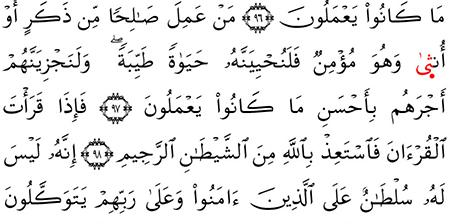 مَا كَانُوا۟ يَعْمَلُونَ ﴿٩٦﴾ مَنْ عَمِلَ صَـٰلِحًا مِّن ذَكَرٍ أَوْ
أُنثَىٰ وَهُوَ مُؤْمِنٌ فَلَنُحْيِيَنَّهُۥ حَيَوٰةً طَيِّبَةً ۖ وَلَنَجْزِيَنَّهُمْ
أَجْرَهُم بِأَحْسَنِ مَا كَانُوا۟ يَعْمَلُونَ ﴿٩٧﴾ فَإِذَا قَرَأْتَ
ٱلْقُرْءَانَ فَٱسْتَعِذْ بِٱللَّهِ مِنَ ٱلشَّيْطَـٰنِ ٱلرَّجِيمِ ﴿٩٨﴾ إِنَّهُۥ لَيْسَ
لَهُۥ سُلْطَـٰنٌ عَلَى ٱلَّذِينَ ءَامَنُوا۟ وَعَلَىٰ رَبِّهِمْ يَتَوَكَّلُونَ